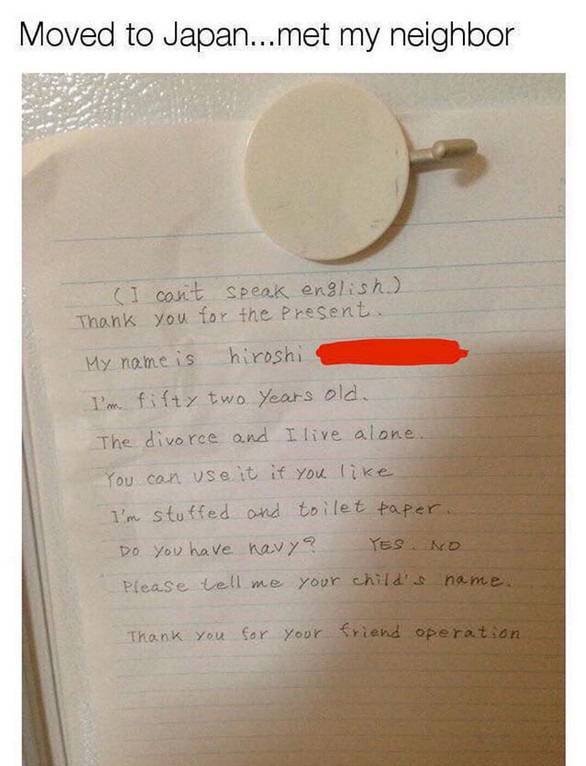 Moved to Japan...met my neighbor
(I can't speak english.)
Thank you for the Present.
My name is hiroshi
I'm fifty two years old.
The divorce and I live alone.
You can use it if you like
I'm stuffed and toilet paper.
Do you have navy? YES. NO
Please tell me your child's name.
Thank you for your friend operation